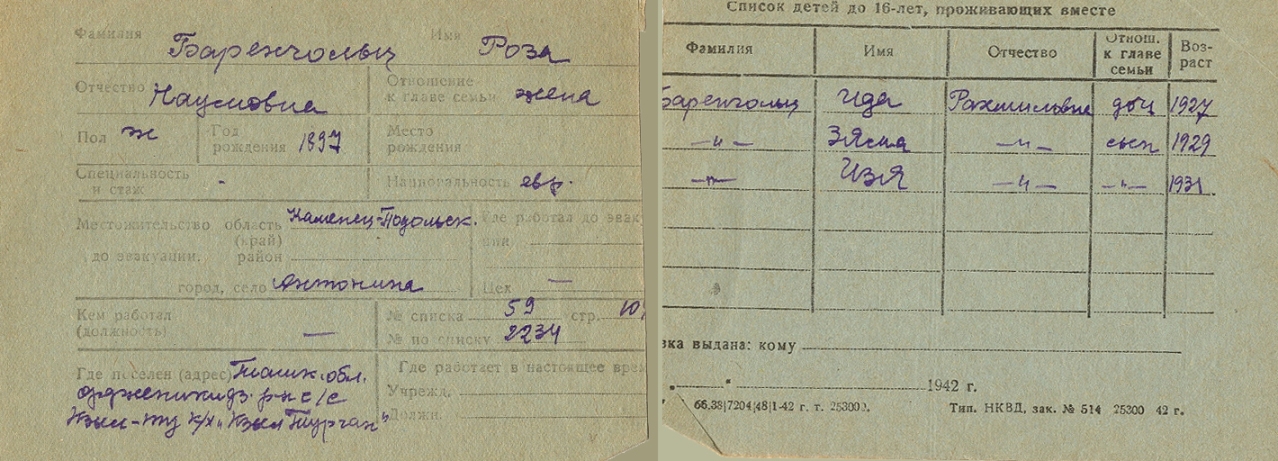 Фамилия Баренгольц Имя Роза
Отчество Наумовна Отношение к главе семьи жена
Пол ж Год рождения 1897 Место рождения
Специальность и стаж - Национальность евр.
Местожительство область Каменец-Подольск. где работал до эваку
(край)
до эвакуации. район
город, село Антонина Цех —
Кем работал № списка 59 стр. 10
(должность) — № по списку 2234
Где поселен (адрес) Ташк. обл. Где работает в настоящее врем
орджоникидз. р-н с/с Учрежд.
к/х „Кзыл Должн.
Список детей до 16-лет, проживающих вместе
Фамилия Имя Отчество Отнош. к главе семьи Воз-раст
Баренгольц Ида Рахмиловна доч 1927
—„— Зяма —„— сын 1929
—„— Изя —„— —„— 1931
вка выдана: кому
1942 г.
66.38|7204|48|1-42 г. т. 253000. Тип. НКВД, зак. № 514 25300 42 г.